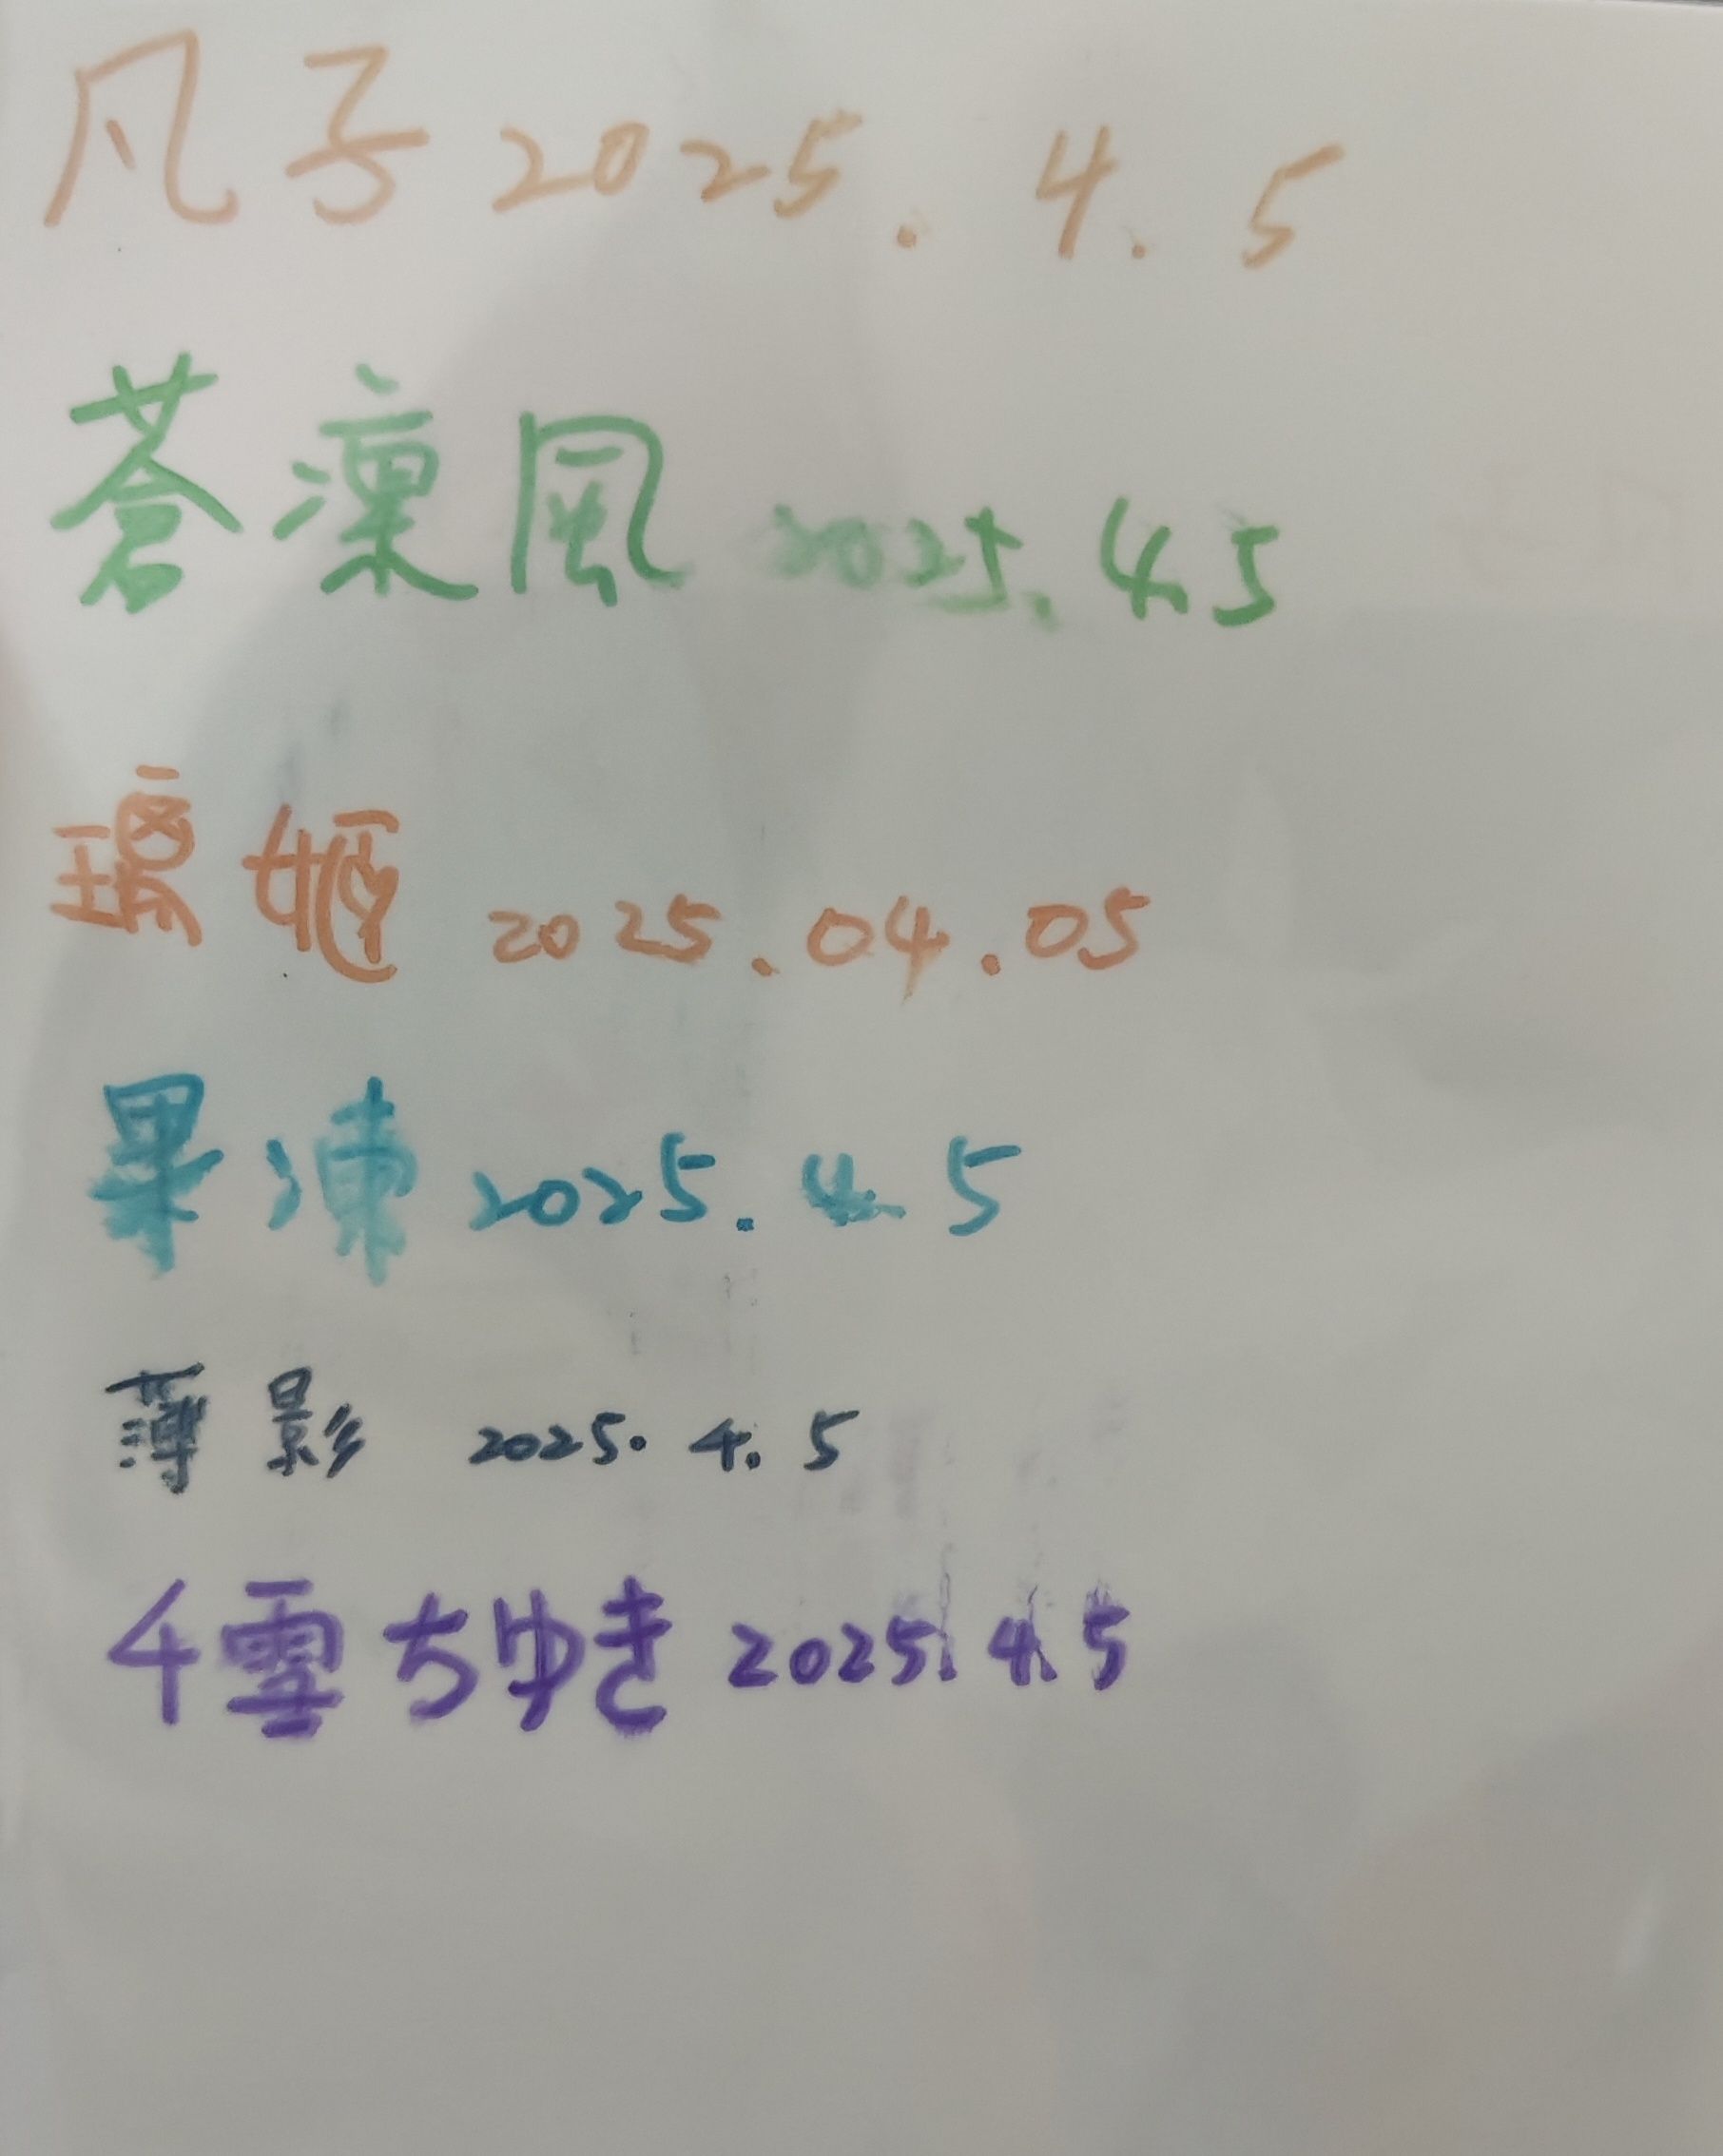 凡子2025.4.5
蒼凜風 2025.4.5
璃姬 2025.04.05
果凍 2025.4.5
薄影 2025.4.5
千雪ちゆき 2025.4.5